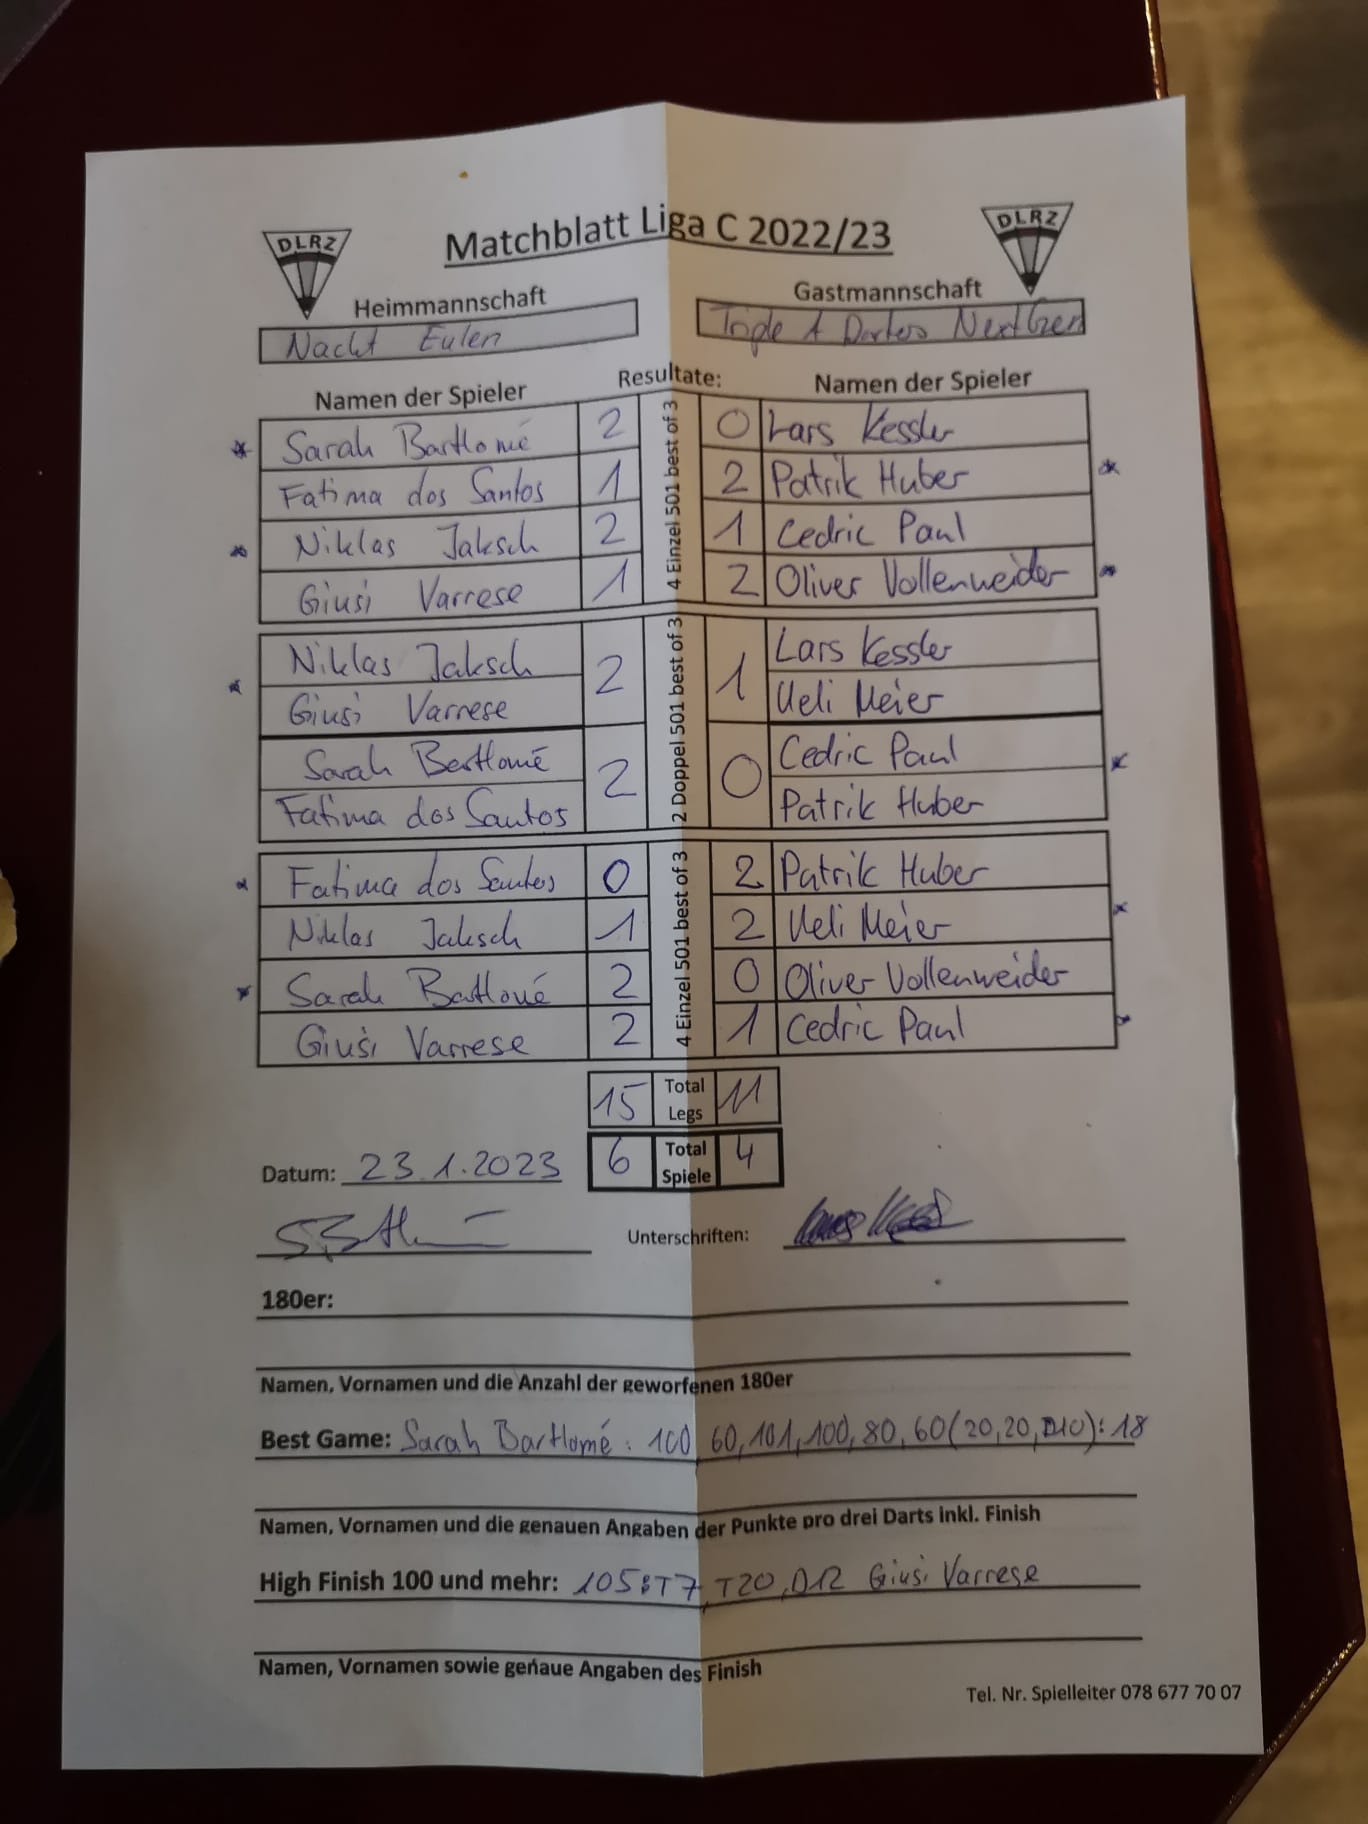 Matchblatt Liga C 2022/23
DLRZ
DLRZ
Heimmannschaft
Gastmannschaft
Nacht Eulen
Triple A Darters NextGen
Namen der Spieler
Resultate:
Namen der Spieler
4 Einzel 501 best of 3
* Sarah Bartlomé 2 0 Lars Kessler
Fatima dos Santos 1 2 Patrik Huber *
* Niklas Jaksch 2 1 Cedric Paul
Giusi Varrese 1 2 Oliver Vollenweider *
2 Doppel 501 best of 3
* Niklas Jaksch 2 1 Lars Kessler
Giusi Varrese Ueli Meier
Sarah Bartlomé 2 0 Cedric Paul *
Fatima dos Santos Patrik Huber
4 Einzel 501 best of 3
* Fatima dos Santos 0 2 Patrik Huber
Niklas Jaksch 1 2 Ueli Meier *
* Sarah Bartlomé 2 0 Oliver Vollenweider
Giusi Varrese 2 1 Cedric Paul *
15 Total Legs 11
6 Total Spiele 4
Datum: 23.1.2023
Unterschriften:
180er:
Namen, Vornamen und die Anzahl der geworfenen 180er
Best Game: Sarah Bartlomé: 100, 60, 101, 100, 80, 60 (20, 20, D10): 18
Namen, Vornamen und die genauen Angaben der Punkte pro drei Darts inkl. Finish
High Finish 100 und mehr: 105: T7, T20, D12 Giusi Varrese
Namen, Vornamen sowie genaue Angaben des Finish
Tel. Nr. Spielleiter 078 677 70 07